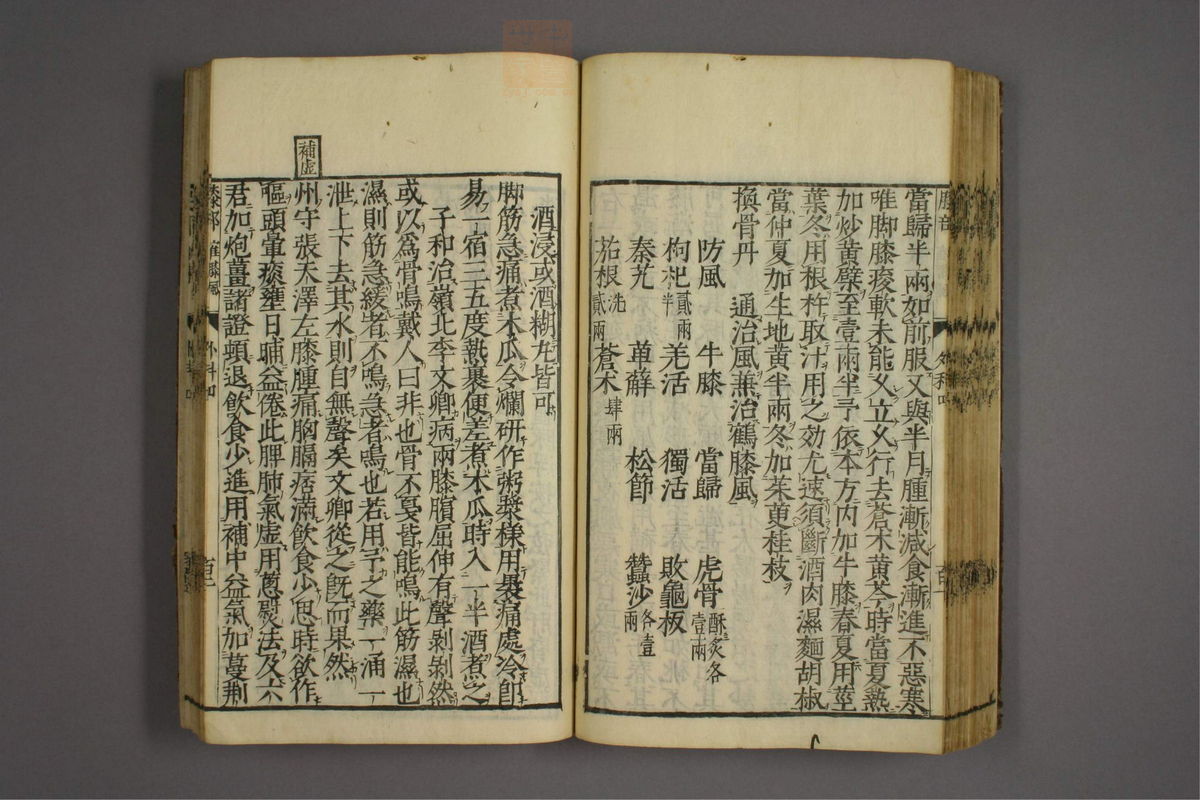 當歸半兩如前服又與半月腫漸減食漸進不惡寒
唯脚膝痠軟未能久立久行去蒼朮黃芩時當夏熱
加炒黃蘗至壹兩半予依本方内加牛膝春夏用莖
葉冬用根杵取汁用之効尤速須斷酒肉濕麵胡椒
當仲夏加生地黃半兩冬加茱萸桂枝
換骨丹　通治風蕪治鶴膝風
防風　牛膝　當歸　虎骨酥炙各壹兩
枸杞貳兩半　羌活　獨活　敗龜板
秦艽　萆薢　松節　蠶沙各壹兩
茄根洗貳兩　蒼朮肆兩
酒浸或酒糊丸皆可
脚筋急痛煮木瓜令爛研作粥漿樣用裹痛處冷卽
易一宿三五度熱裹便差煮木瓜時入一半酒煮之
子和治嶺北李文卿病兩膝臏屈伸有聲剝剝然
或以爲骨鳴戴人曰非也骨不戛皆能鳴此筋濕也
濕則筋急緩者不鳴急者鳴也若用予之藥一涌一
泄上下去其水則自無聲矣文卿從之旣而果然
補虛
州守張天澤左膝腫痛胸膈痞滿飲食少思時欲作
嘔頭暈痰壅日晡益倦此脾肺氣虛用葱熨法及六
君加炮薑諸證頓退飲食少進用補中益氣加蔓荆
膝部
外科四
百二